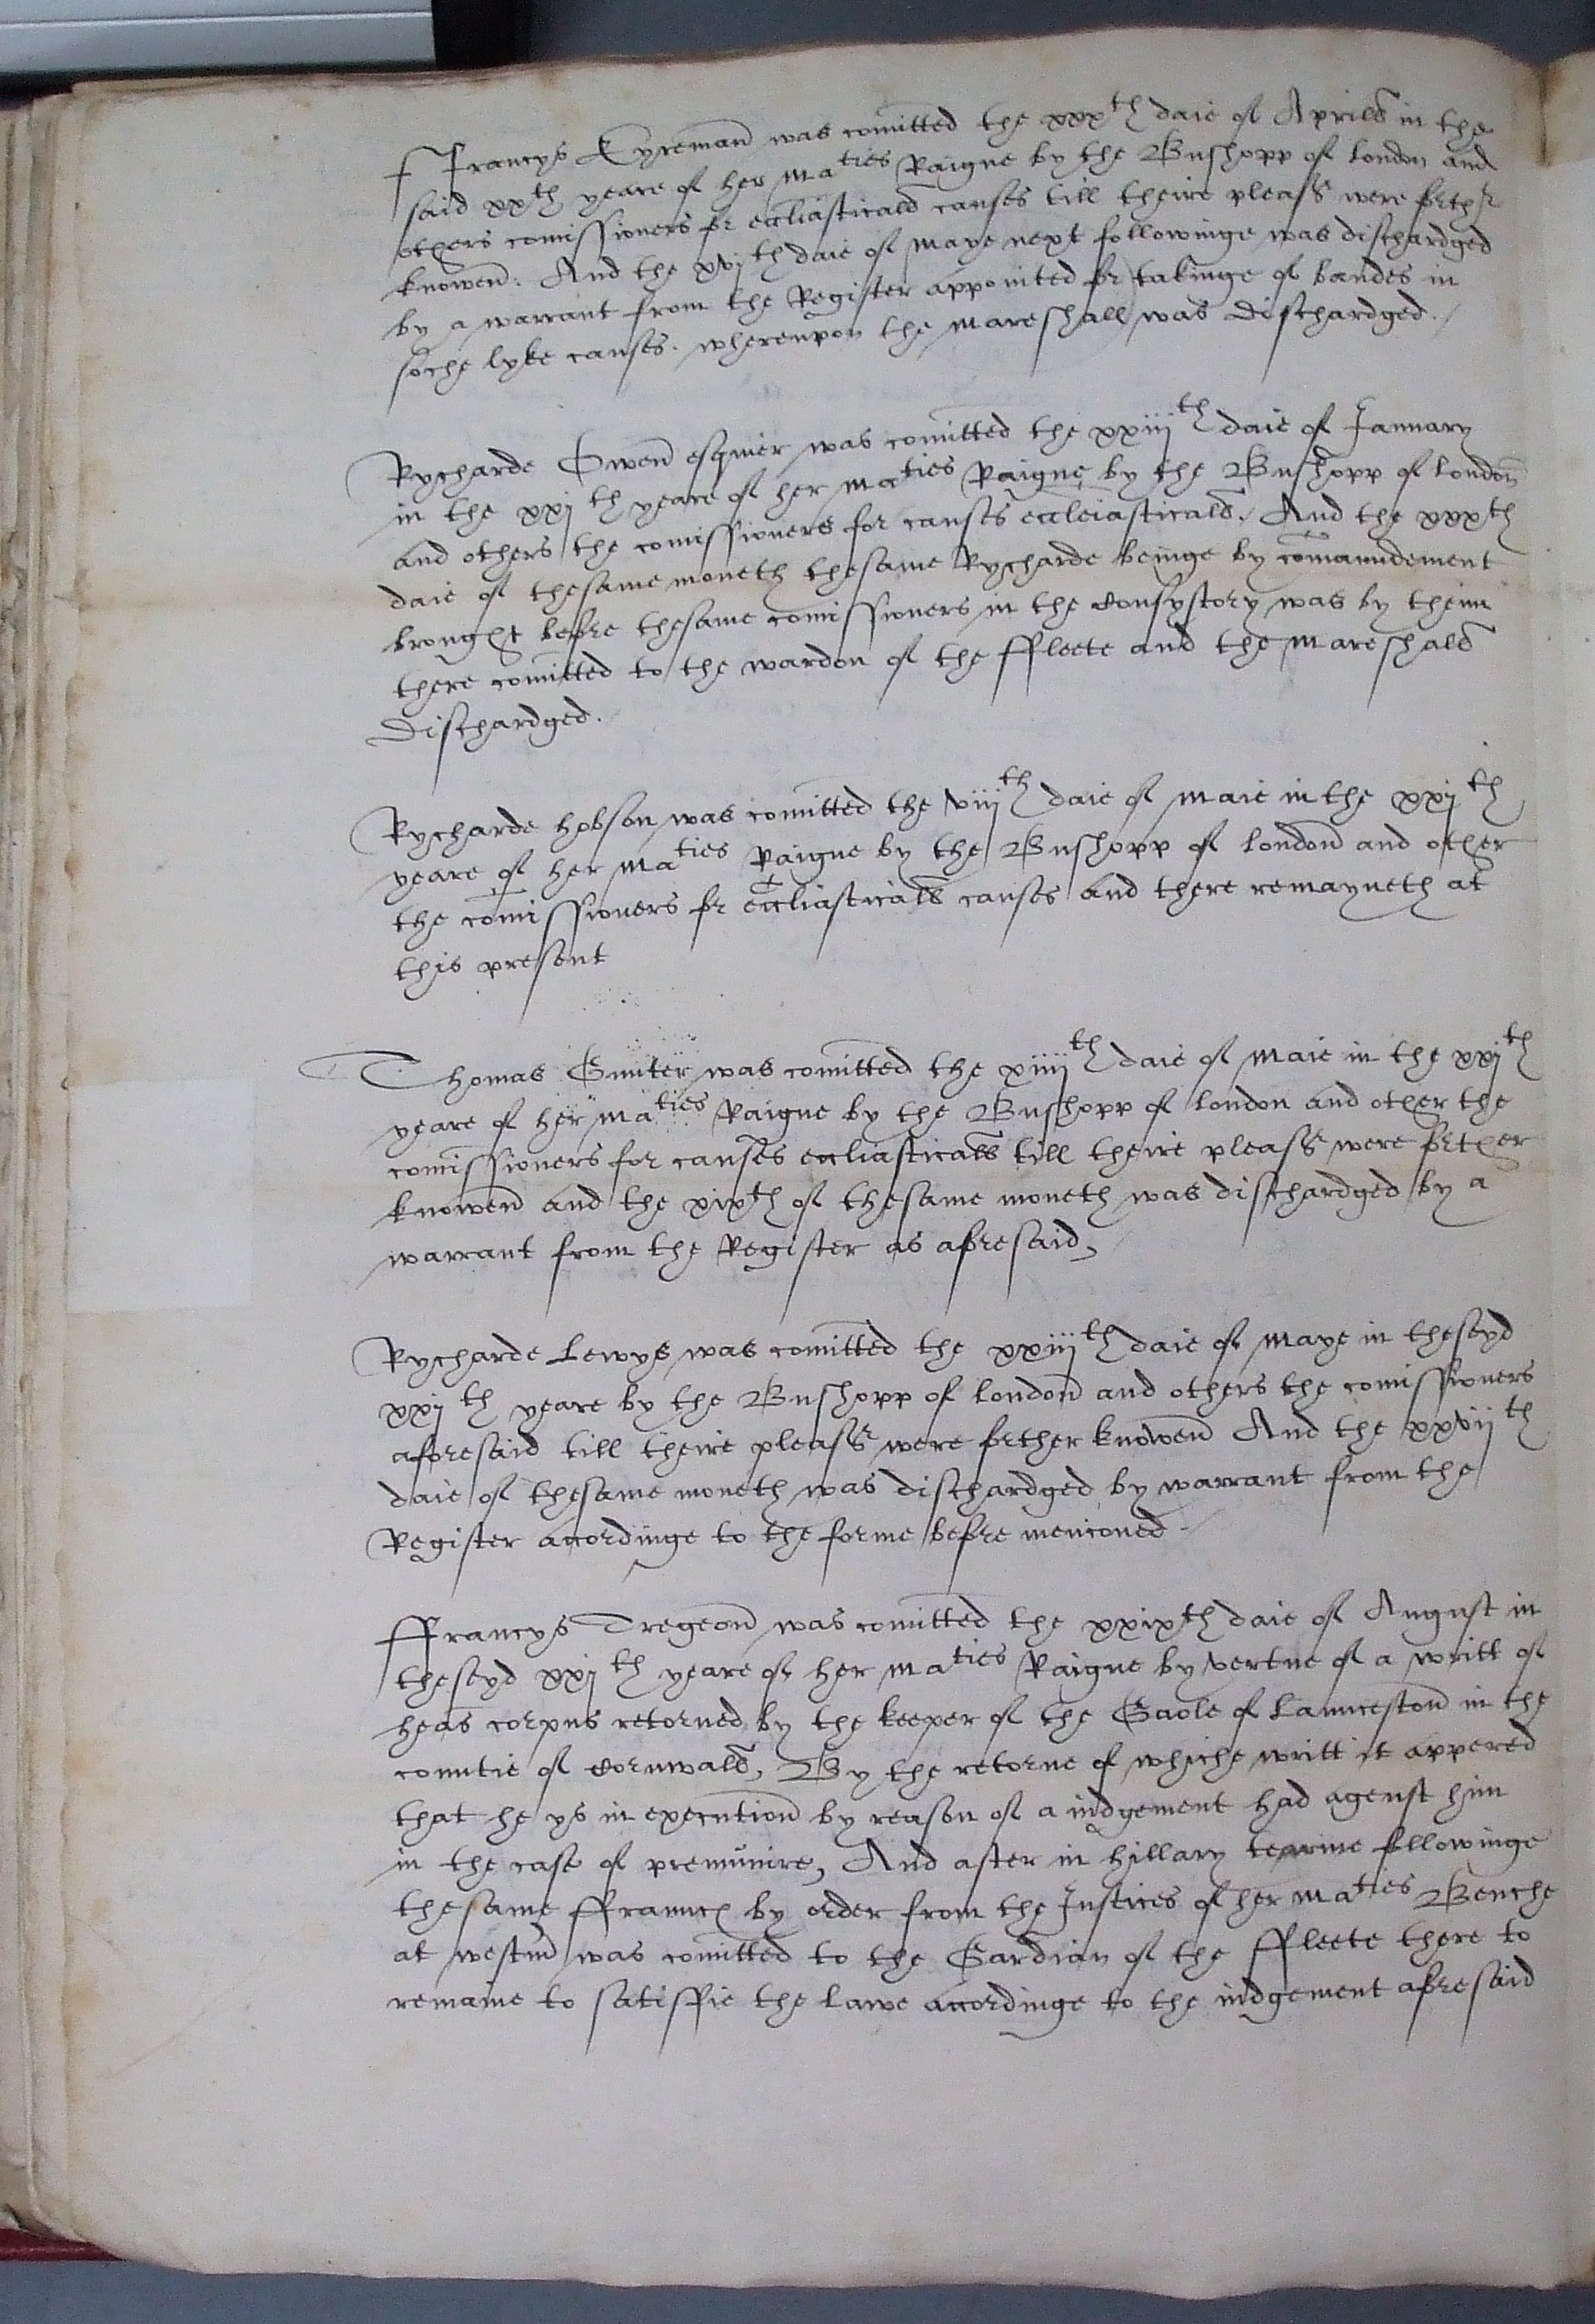 ffrancys Eyreman was comitted the xxxth daie of Aprill in the
said xxth yeare of her maties Raigne by the Busshopp of london and
others comissioners for eccliasticall causes till theire pleass were forther
knowen. And the xvjth daie of maye next followinge was dischardged
by a warrant from the Register appointed for takinge of bandes in
soche lyke causes. whereupon the mareshall was dischardged.
Rycharde Owen esquier was comitted the xxiijth daie of January
in the xxjth yeare of her maties Raigne by the Busshopp of london
and others the comissioners for causes eccleiasticall. And the xxxth
daie of thesame moneth thesame Rycharde beinge by comaundement
brought before thesame comissioners in the Consystory was by theim
there comitted to the wardon of the ffleete and the mareshall
dischardged.
Rycharde hobson was comitted the viijth daie of maie in the xxjth
yeare of her maties Raigne by the Busshopp of london and other
the comissioners for eccliasticall causes and there remayneth at
this present
Thomas Gunter was comitted the xiiijth daie of maie in the xxjth
yeare of her maties Raigne by the Busshopp of london and other the
comissioners for causes eccliasticall till theire pleass were forther
knowen and the xixth of thesame moneth was dischardged by a
warrant from the Register as aforesaid,
Rycharde Lewys was comitted the xxiijth daie of maye in theseyd
xxjth yeare by the Busshopp of london and others the comissioners
aforesaid till theire pleass were forther knowen And the xxvijth
daie of thesame moneth was dischardged by warrant from the
Register accordinge to the forme before mencioned
ffrancys Tregeon was comitted the xxixth daie of August in
theseyd xxjth yeare of her maties Raigne by vertue of a writt of
heas corpus retorned by the keeper of the Gaole of Launceston in the
countie of Cornwall, By the retorne of whiche writt it appered
that he ys in execution by reason of a iudgement had agenst him
in the case of premunire, And after in hillary tearme followinge
thesame ffraunc by order from the Justices of her maties Benche
at westm was comitted to the Gardian of the ffleete there to
remaine to satisfie the lawe accordinge to the iudgement aforesaid